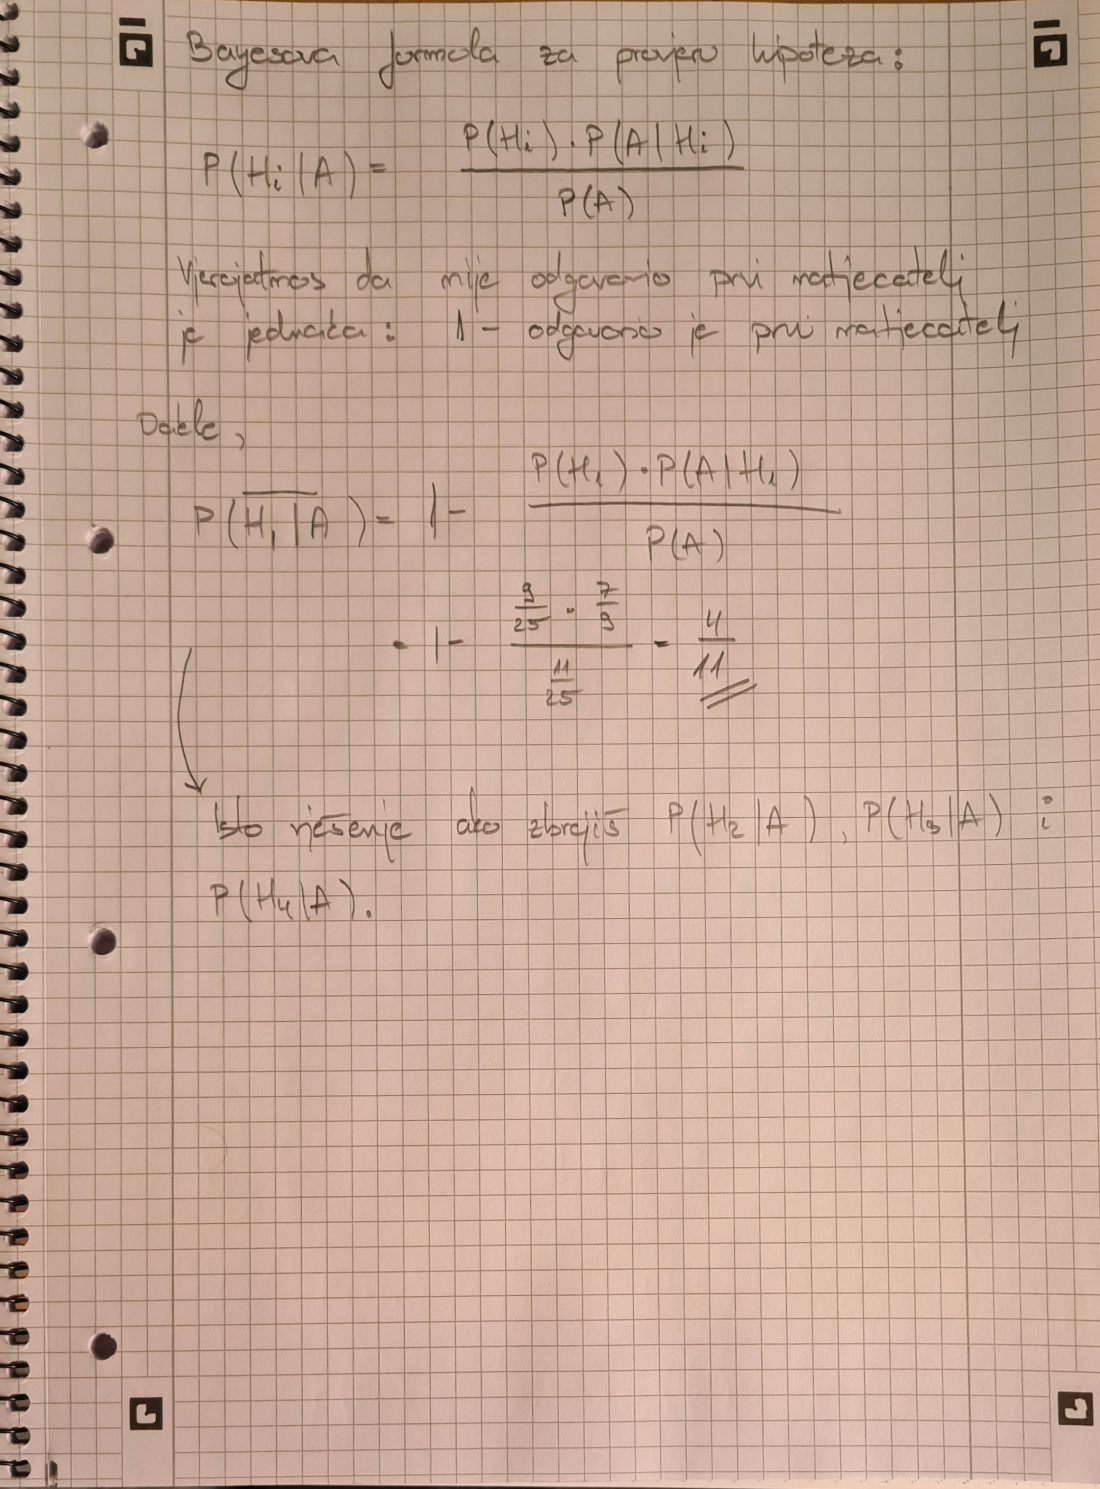 Bayesova formula za provjeru hipoteza:
P(Hi|A) = P(Hi) · P(A|Hi) / P(A)
Vjerojatnos da nije odgovorio prvi natjecatelj
je jednaka: 1 - odgovorio je prvi natjecatelj
Dakle,
P(H₁|A)‾ = 1 - P(H₁) · P(A|H₁) / P(A)
= 1 - (9/25 · 7/9) / (11/25) = 4/11
Isto rješenje ako zbrojiš P(H₂|A), P(H₃|A) i
P(H₄|A).